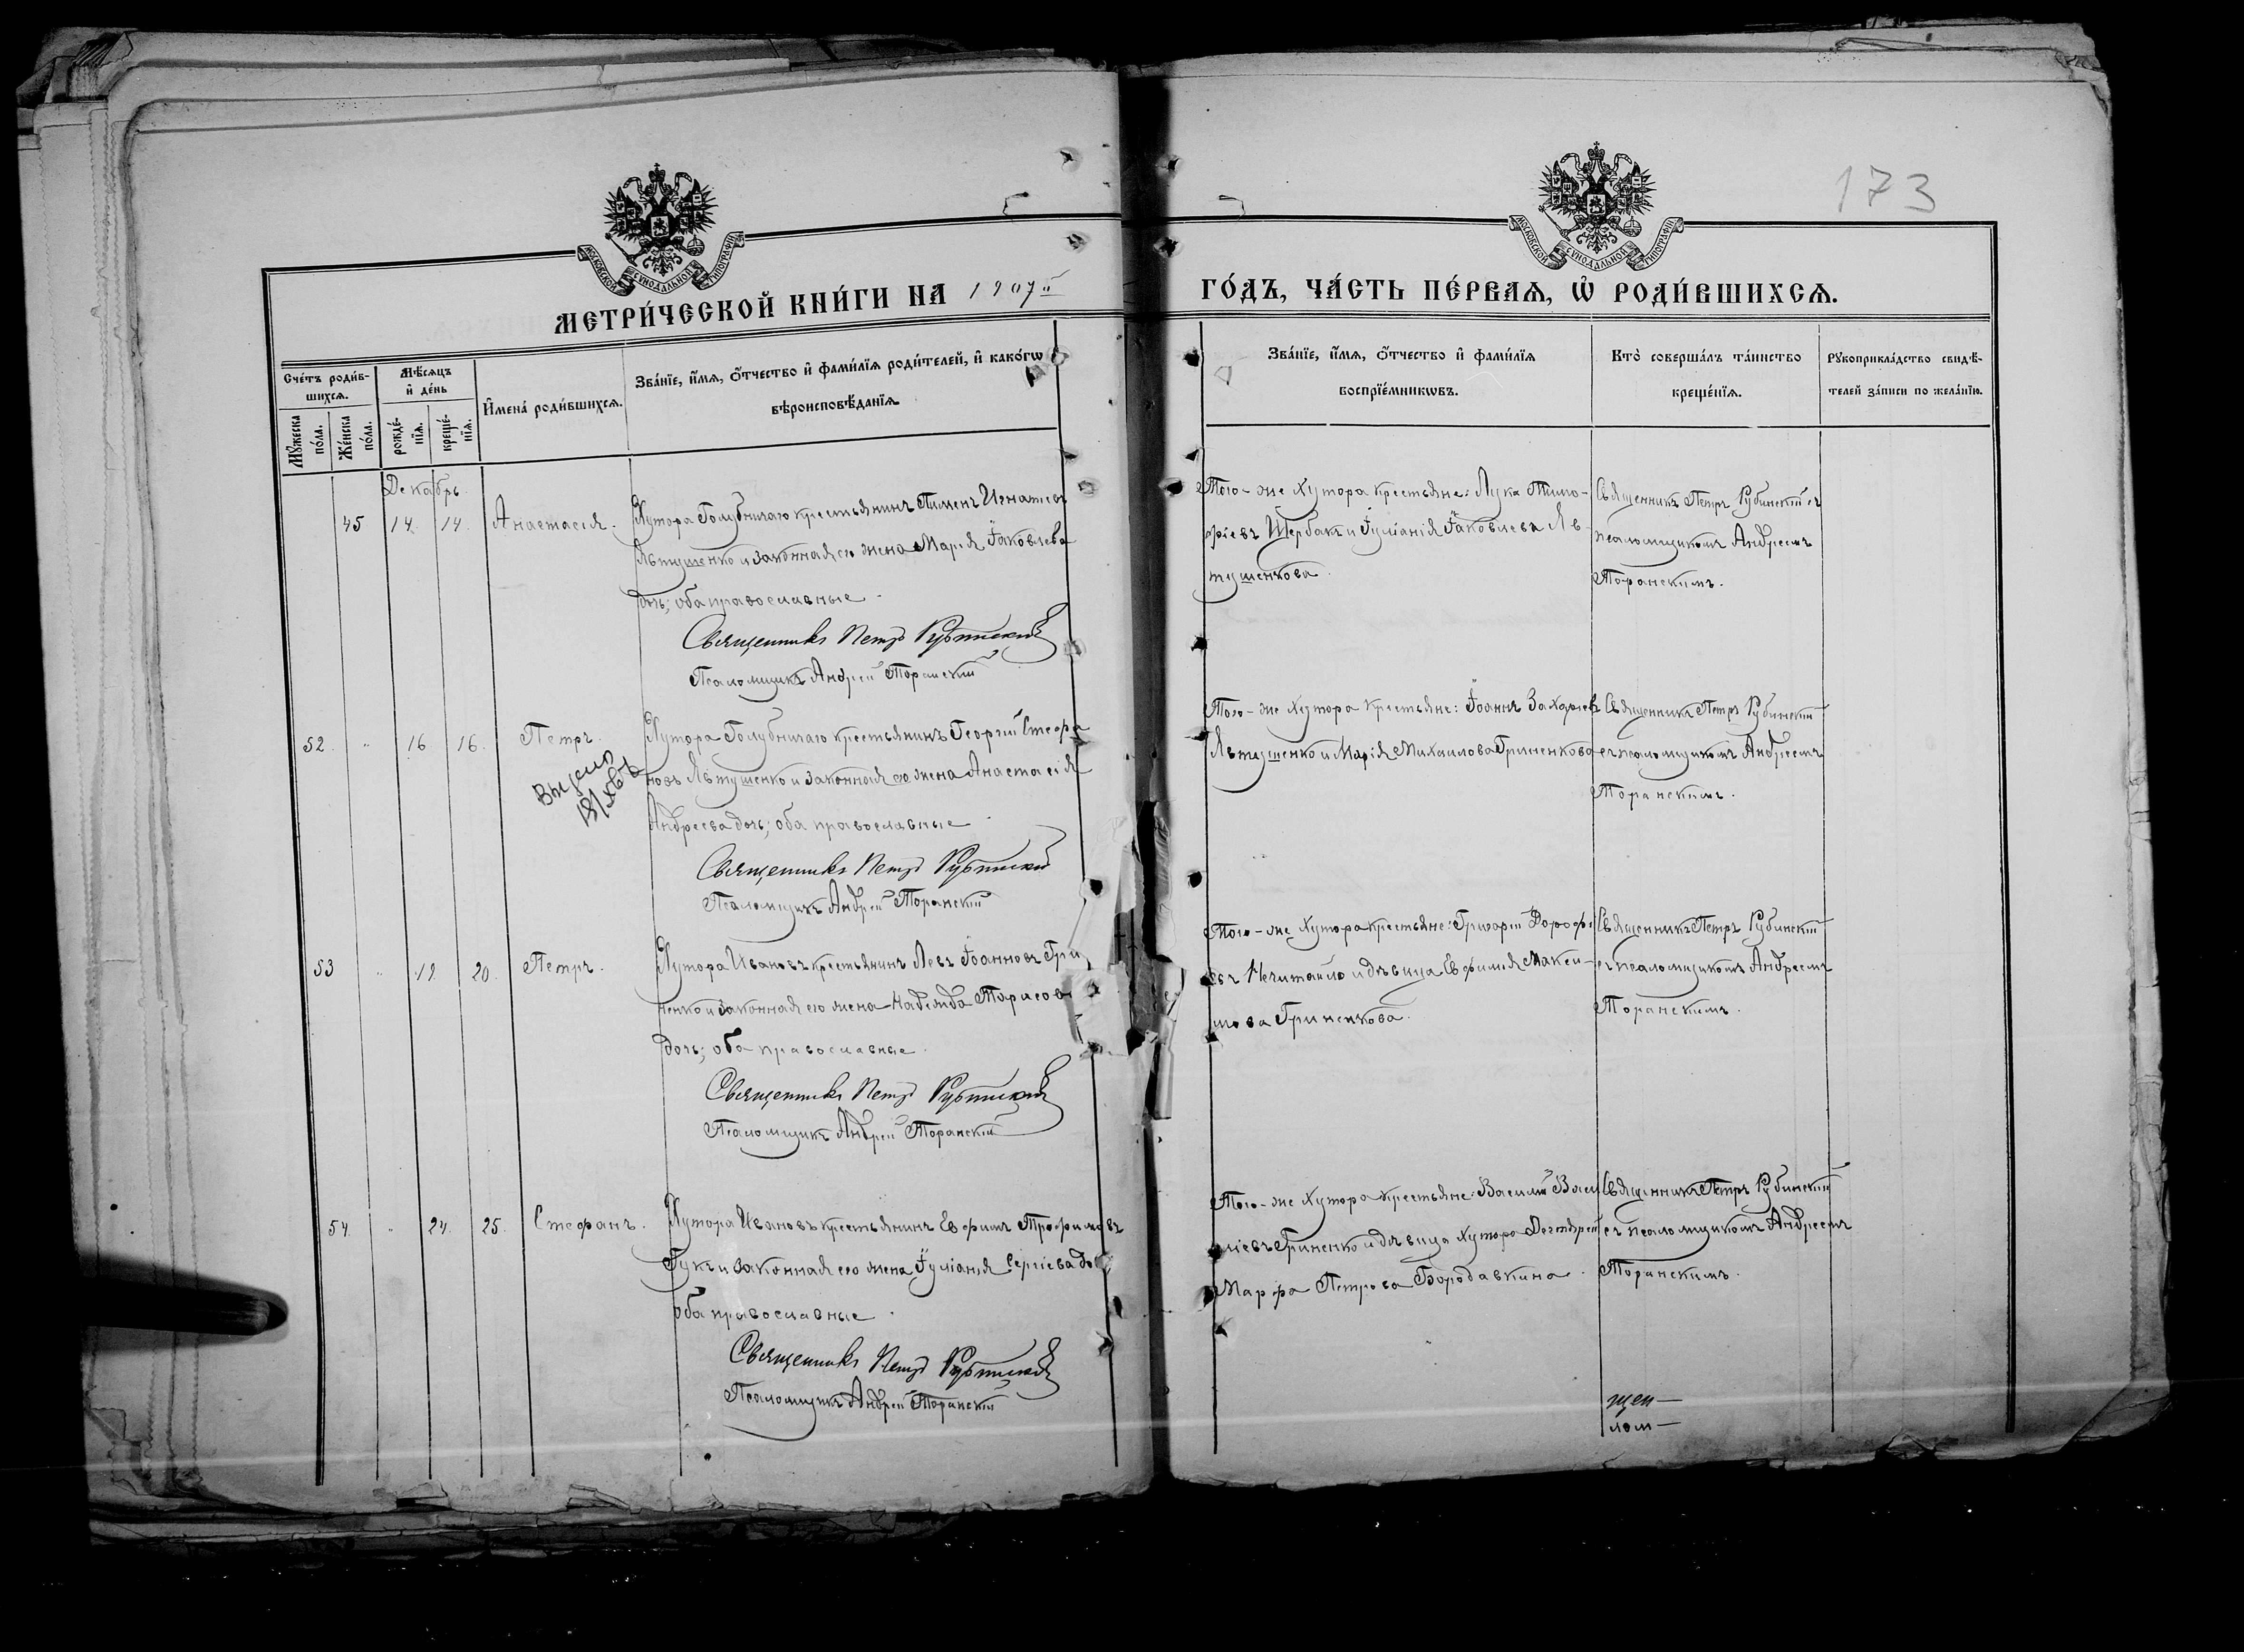 173
МОСКОВСКОЙ СѴНОДАЛЬНОЙ ТИПОГРАФІИ
МОСКОВСКОЙ СѴНОДАЛЬНОЙ ТИПОГРАФІИ
МЕТРИ́ЧЕСКОЙ КНИ́ГИ НА 1907й
ГО́ДЪ, ЧА́СТЬ ПЕ́РВАѦ, Ѽ РОДИ́ВШИХСѦ.
Сче́тъ роди́в-
шихсѧ.
Мꙋ́жеска по́ла.
Же́нска по́ла.
Мѣ́сѧцъ
и҆ де́нь
рожде́-
нїѧ.
креще́-
нїѧ.
И҆мена́ роди́вшихсѧ.
Зва́нїе, и҆́мѧ, ѻ҆́тчество и҆ фами́лїѧ роди́телей, и҆ како́гѡ
вѣроисповѣ́данїѧ
Зва́нїе, и҆́мѧ, ѻ҆́тчество и҆ фами́лїѧ
воспрїе́мникѡвъ.
Кто̀ соверша́лъ та́инство
креще́нїѧ.
Рꙋкоприкла́дство свидѣ́-
телей за́писи по жела́нїю.
Декабрь
45 14. 14. Анастасія.
Хутора Голубничаго крестьянинъ Пименъ Игнатіевъ
Явтушенко и законная его жена Марія Іаковлева
дочь; оба православные.
Священникъ Петръ Рубинскій
Псаломщикъ Андрей Торанскій
Того-же Хутора крестьяне: Лука Тимо-
фіевъ Щербакъ и Іуліанія Іаковлева Яв-
тушенкова.
Священникъ Петръ Рубинскій съ
псаломщикомъ Андреемъ
Торанскимъ.
52. " 16 16. Петръ.
Хутора Голубничаго крестьянинъ Георгій Стефа
новъ Явтушенко и законная его жена Анастасія
Андреева дочь; оба православные.
Священникъ Петръ Рубинскій
Псаломщикъ Андрей Торанскій
Того-же Хутора крестьяне: Іоаннъ Захаріевъ
Явтушенко и Марія Михаилова Гриненкова
Священникъ Петръ Рубинскій
съ псаломщикомъ Андреемъ
Торанскимъ.
53 " 19. 20. Петръ.
Хутора Ивановъ крестьянинъ Левъ Іоанновъ Гри
ненко и законная его жена Надежда Тарасов
дочь; оба православные.
Священникъ Петръ Рубинскій
Псаломщикъ Андрей Торанскій
Того-же Хутора крестьяне: Григорій Дорофі
евъ Нечитайло и дѣвица Евфимія Макси-
мова Гриненкова.
Священникъ Петръ Рубинскій
съ псаломщикомъ Андреемъ
Торанскимъ.
54. " 24. 25. Стефанъ.
Хутора Ивановъ крестьянинъ Евфимъ Трофимовъ
Гукъ и законная его жена Іуліанія Сергіева до
оба православные.
Священникъ Петръ Рубинскій
Псаломщикъ Андрей Торанскій
Того-же Хутора крестьяне: Василій Васи
ліевъ Гриненко и дѣвица хутора
Марфа Петрова Бородавкина.
Священникъ Петръ Рубинскій
съ псаломщикомъ Андреемъ
Торанскимъ.
щен—
лом—